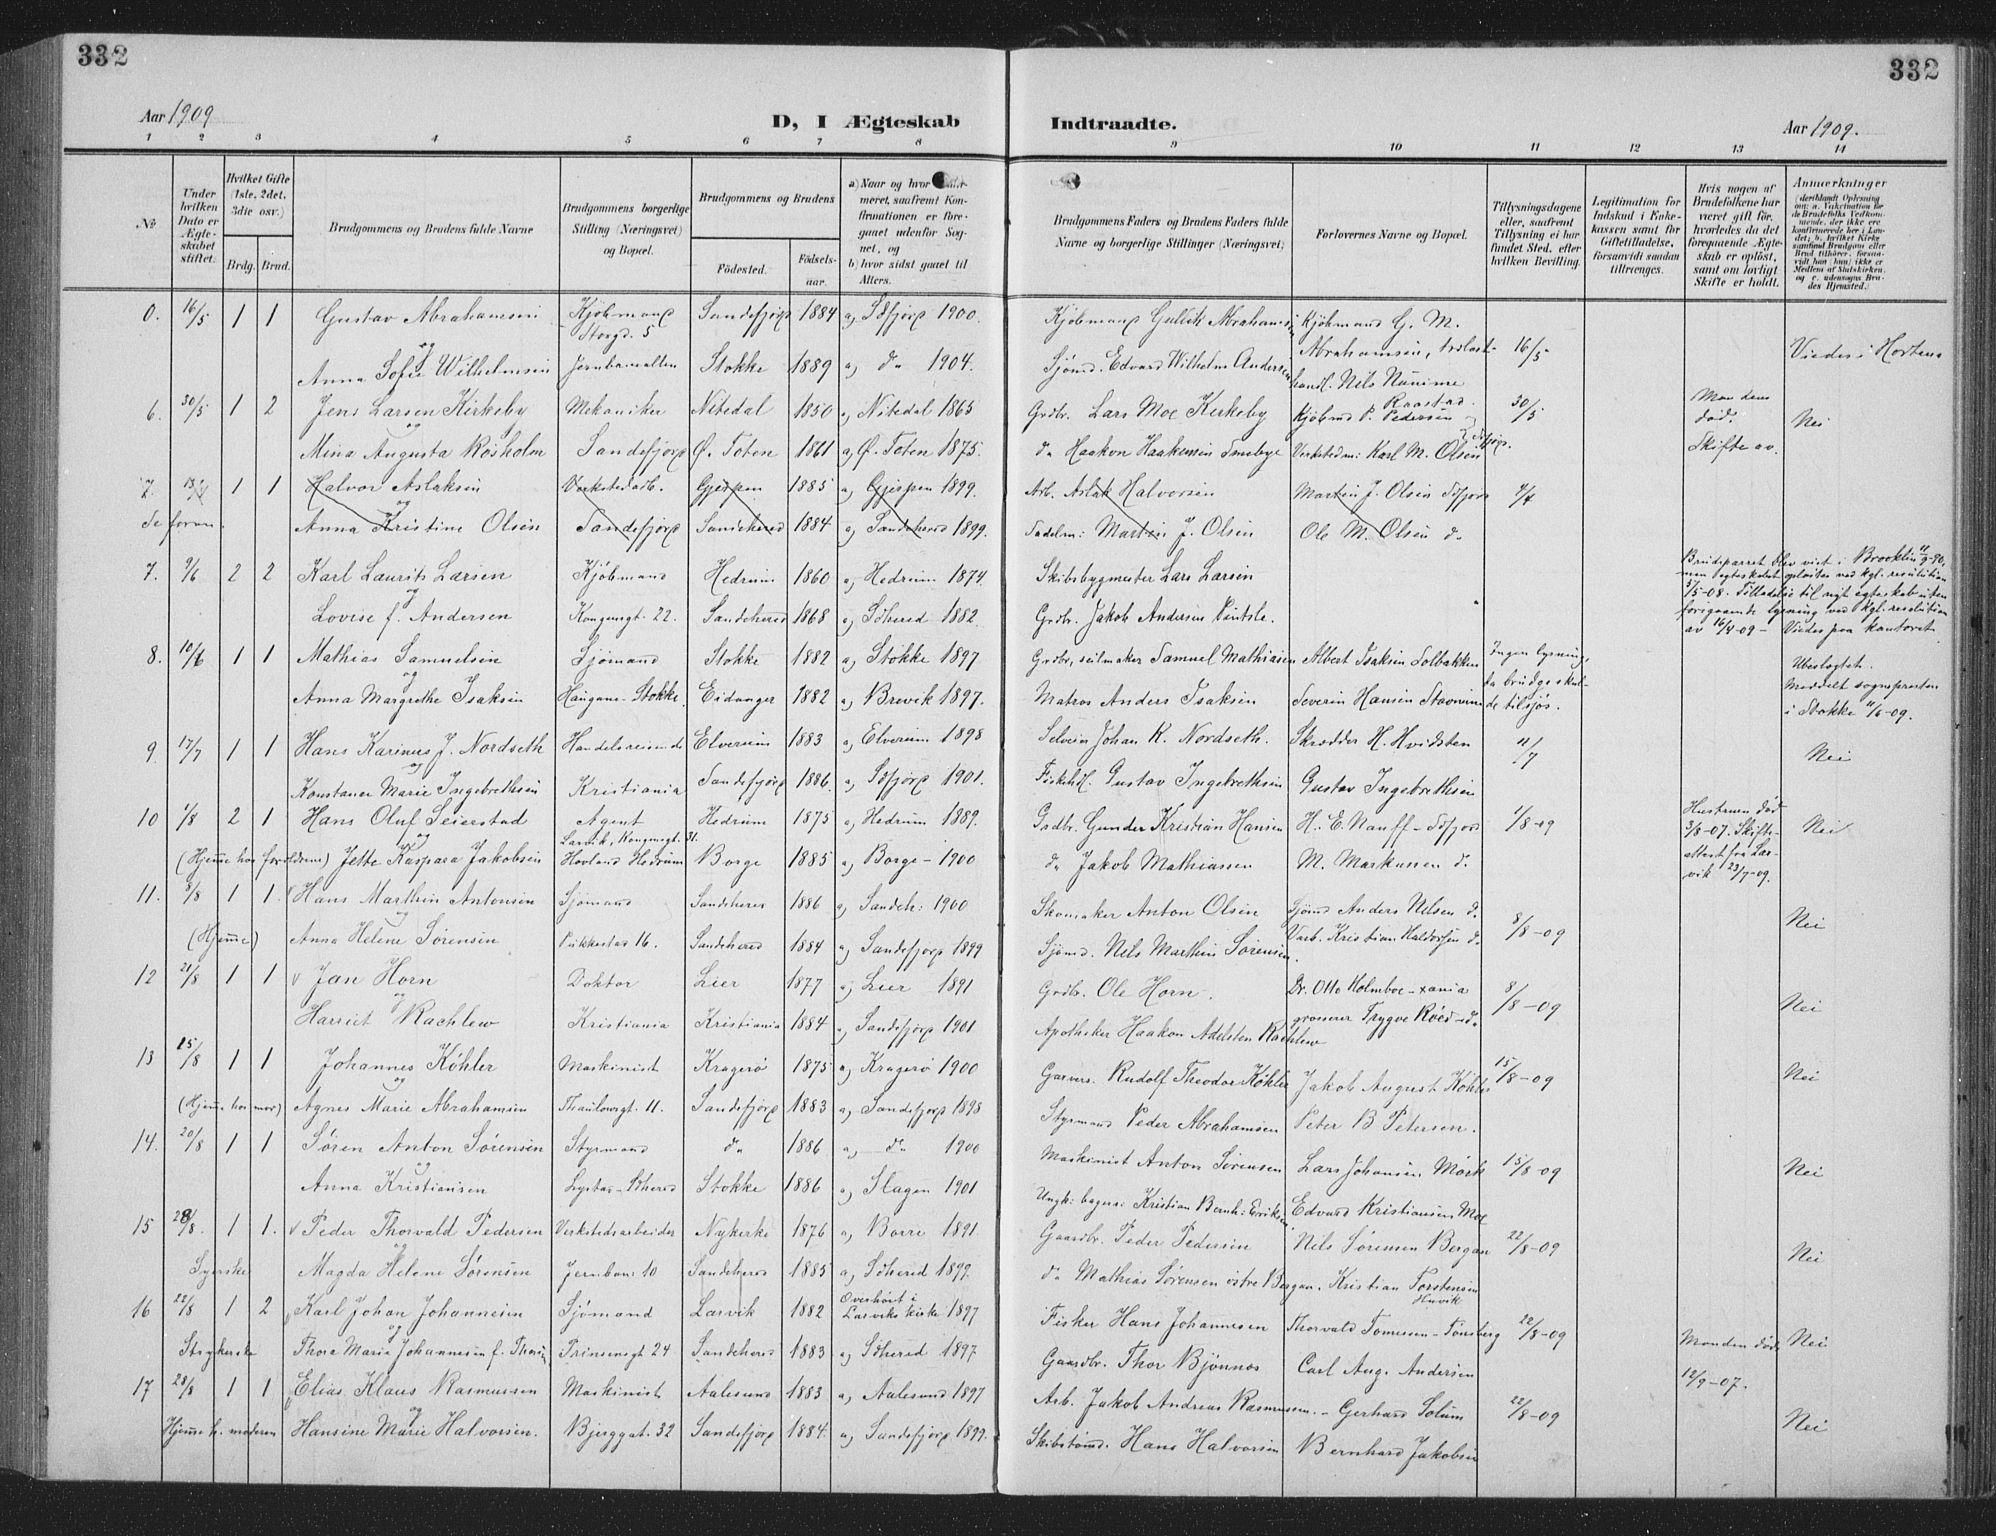 332
332
Aar 1909
D, I Ægteskab
Indtraadte.
Aar 1909.
1 2 3 4 5 6 7 8 9 10 11 12 13 14
№
Under hvilken Dato er Ægteskabet stiftet.
Hvilket Gifte (1ste, 2det, 3die osv.)
Brdg. Brud.
Brudgommens og Brudens fulde Navne
Brudgommens borgerlige Stilling (Næringsvei) og Bopæl.
Brudgommens og Brudens
Fødested.
Fødselsaar.
a) Naar og hvor
meret, saafremt Konfirmationen er foregaaet udenfor Sognet, og
b) hvor sidst gaaet til Alters.
Brudgommens Faders og Brudens Faders fulde Navne og borgerlige Stillinger (Næringsvei)
Forlovernes Navne og Bopæl.
Tillysningsdagene eller, saafremt Tillysning ei har fundet Sted, efter hvilken Bevilling.
Legitimation for Indskud i Enkekassen samt for Giftetilladelse, forsaavidt saadan tiltrænges.
Hvis nogen af Brudefolkene har været gift før, hvorledes da det foregaaende Ægteskab er opløst, samt om lovligt Skifte er holdt.
Anmerkninger
(deriblandt Oplysning om: a. Vakcination for de Brudefolks Vedkommende, der ikke ere konfirmerede her i Landet; b. hvilket Kirkesamfund Brudgom eller Brud tilhører, forsaavidt han (hun) ikke er Medlem af Statskirken, og c. udensogns Brudes Hjemsted.)
16/5 1 1 Gustav Abrahamsen Kjøbmand Storgd. 5 Sandefjord 1884 a) Sdfjord 1900. Kjøbmand Gullik Abrahamsen Kjøbmand G. M.
og
Anna Sofie Wilhelmsen Jernbanealleen Stokke 1889 a) do 1904. Sjømd. Edvard Wilhelm Andersen Abrahamsen, trælasthandl. Nils Naume 16/5 Viedes i Horten
6. 30/5 1 2 Jens Larsen Kirkeby Mekaniker Nitedal 1850 a) Nitedal 1865 Grdbr. Lars Moe Kirkeby Raastad. Kjøbmd P. Pedersen 30/5 Manden død. Nei
og
Mina Augusta Røsholm Sandefjord Ø. Toten 1861 a) Ø. Toten 1875. do Haakon Haakensen Smebye Verkstedm: Karl M. Olsen Sdfjord. Skifte av.
7. 1 1 Halvor Aslaksen Verkstedarb. Gjerpen 1885 a) Gjerpen 1899. Arb. Aslak Halvorsen Martin J. Olsen Sdfjord
og
Se foran. Anna Kristine Olsen Sandefjord Sandeherred 1884 a) Sandeherred 1899. Sadelm: Martin J. Olsen Ole M. Olsen do
7. 9/6 2 2 Karl Laurits Larsen Kjøbmand Hedrum 1860 a) Hedrum 1874. Skibsbygmester Lars Larsen
og
Lovise f. Andersen Kongensgt. 22. Sandeherred 1868 a) Sdherred 1882. Grdbr. Jakob Andersen Pintsle.
Brudeparret blev viet i Brooklin 11/9-80,
men egteskabet opløstes ved kgl. resolution
5/5-08. Tilladelse til nyt egteskab uten
foregaaende lysning ved kgl. resolution
av 16/4-09 – Viedes paa kontoret
8. 10/6 1 1 Mathias Samuelsen Sjømand Stokke 1882 a) Stokke 1897 Grdbr., seilmaker Samuel Mathiasen Albert Isaksen Solbakken Ingen lysning,
og
Anna Margrethe Isaksen Haugane Stokke Eidanger 1882 a) Brevik 1897. Matros Anders Isaksen Severin Hansen da brudg. skulde tilsjøs. Ubeslægtet. Meddelt sognepresten i Stokke 11/6-09.
9. 17/7 1 1 Hans Karinus J. Nordseth Handelsreisende Elverum 1883 a) Elverum 1898 Selveier Johan K. Nordseth. Skrædder H. Hvidsten 11/7 Nei
og
Konstance Marie Ingebrethsen Kristiania Sandefjord 1886. a) Sdfjord 1901. Fiskehdl. Gustav Ingebrethsen Gustav Ingebrethsen
10 1/8 2 1 Hans Oluf Seierstad Agent Larvik, Kongensgt. 31. Hedrum 1875 a) Hedrum 1889. Grdbr. Gunder Kristian Hansen H. E. Nauff – Sdfjord 1/8-09 Hustruen død 3/8-07. Skifteattest fra Larvik 23/7-09. Nei
og
(Hjemme hos forældrene) Jette Kaspara Jakobsen Hovland Hedrum Borge 1885 a) Borge – 1900 do Jakob Mathiassen M. Markussen do
11. 8/8 1 1. Hans Marthin Antonsen Sjømand Sandeherred 1886 a) Sandeh: 1900 Skomaker Anton Olsen Sjømd Anders Nilsen do 8/8-09 Nei
og
(Hjemme) Anna Helene Sørensen Pukkestad 16. Sandeherred 1884 a) Sandefjord 1899 Sjømd. Nils Marthin Sørensen. Verb. Kristian Haldorsen do
12 21/8 1 1 Jan Horn Doktor Lier 1877 a) Lier 1891 Grdbr. Ole Horn. Dr. Otto Holmboe – xania 8/8-09 Nei
og
Harriet Rachlew Kristiania Kristiania 1884 a) Sandefjord 1901 Apotheker Haakon Adelsten Rachlew grosserer Trygve Røed – do
13 15/8 1 1 Johannes Köhler Maskinist Kragerø 1875 a) Kragerø 1900 Rudolf Theodor Köhler Jakob August Köhler 15/8-09 Nei
og
(Hjemme hos mor) Agnes Marie Abrahamsen Thaulowsgt. 11. Sandefjord 1883 a) Sandefjord 1898 Styrmand Peder Abrahamsen Peter B Petersen.
14. 20/8 1 1 Søren Anton Sørensen Styrmand do 1886 a) do 1900 Maskinist Anton Sørensen Lars Johansen Mørk 15/8-09 Nei
og
Anna Kristiansen Lystad – Sdherred Stokke 1886 a) Slagen 1901 Ungk: bager: Kristian Bernh: Eriksen Edvard Kristiansen Moe
15 28/8. 1 1. Peder Thorvald Pedersen Verkstedsarbeider Nykirke 1876 a) Borre 1891 Gaardbr. Peder Pedersen Nils Sørensen Bergan 22/8-09 Nei
og
Syerske Magda Helene Sørensen Jernban: 10 Sandeherred 1885 a) Sdherred 1899. do Mathias Sørensen østre Bergan. Kristian Torstensen
16 22/8 1 2 Karl Johan Johannesen Sjømand Larvik 1882 Overhørt i Larviks kirke 1897 Fisker Hans Johannesen Thorvald Tomesen – Tønsberg 22/8-09 Manden død Nei
og
Strykerske Thora Marie Johannesen f. Thorsen Prinsensgt 24 Sandeherred 1883 a) Sdherred 1897 Gaardbr. Thor Bjønnes Carl Aug. Andersen 12/9-07.
17 28/8 1 1 Elias Klaus Rasmussen Maskinist Aalesund 1883 a) Aalesund 1897 Arb. Jakob Andreas Rasmussen. – Gerhard Solum 22/8-09 Nei
og
Hjemme h. moderen Hansine Marie Halvorsen. Bjerggat. 32 Sandefjord 1884. a) Sandefjord 1899. Skibstømd. Hans Halvorsen Bernhard Jakobsen